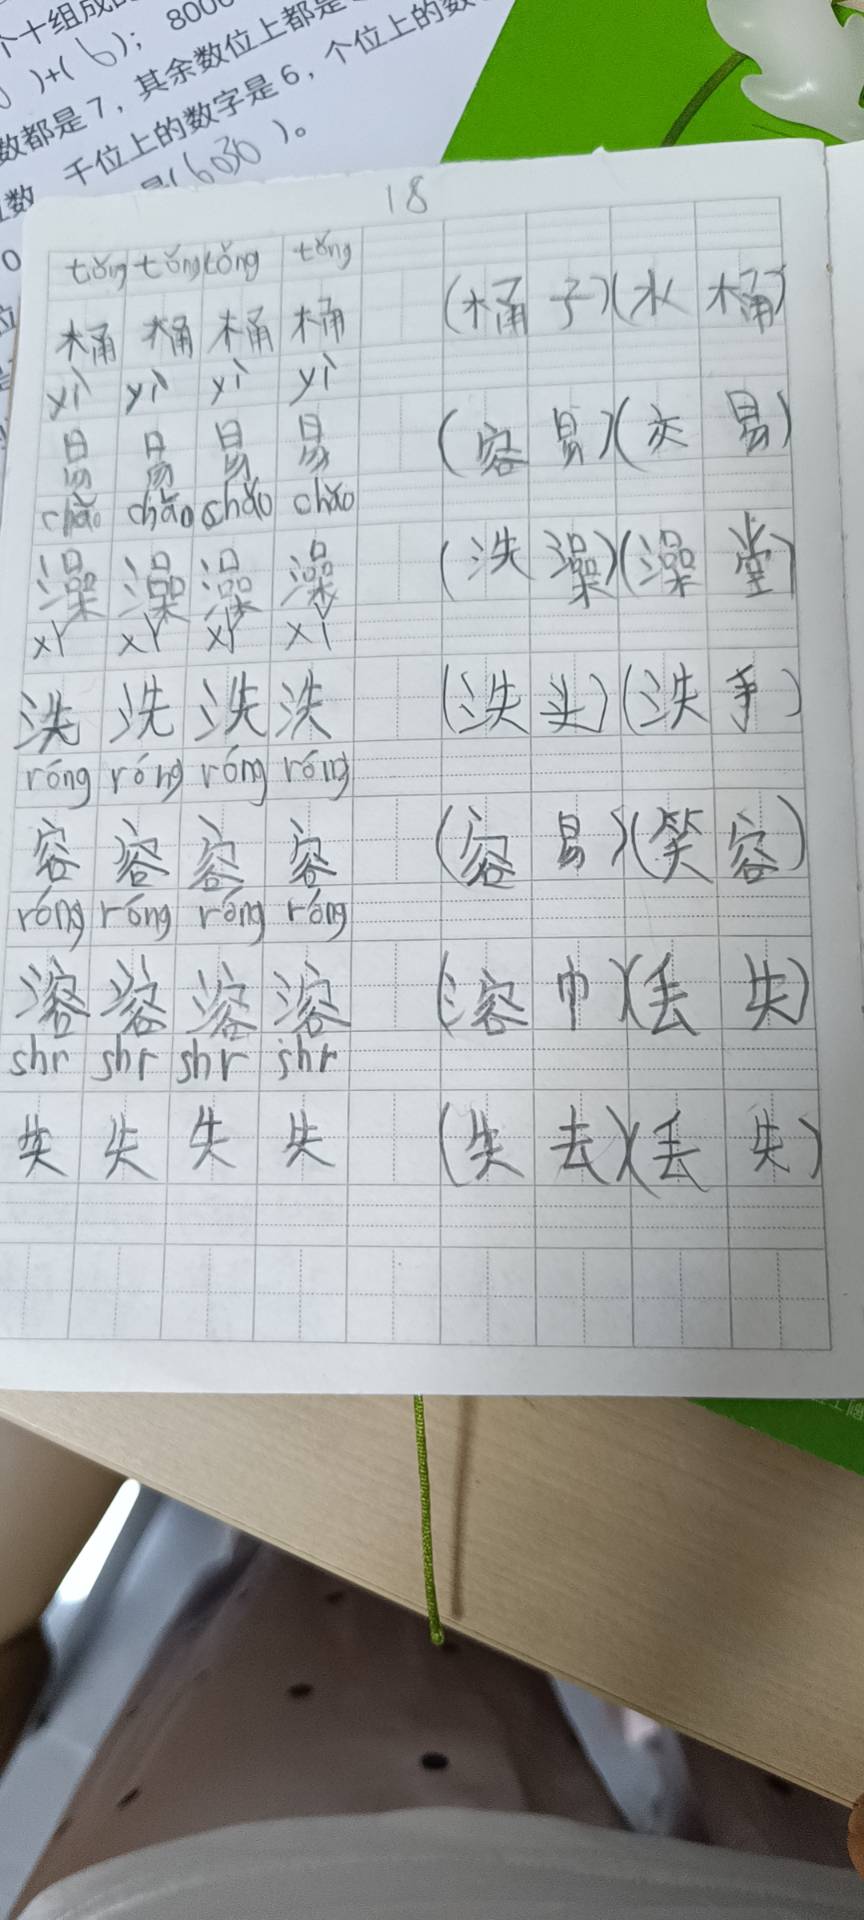 个十组成
)+(6); 800
数都是7，其余数位上都是
数，千位上的数字是6，个位上的数
是(6030)。
18
tǒng tǒng tǒng tǒng
桶 桶 桶 桶 (桶子)(水桶)
yì yì yì yì
易 易 易 易 (容易)(交易)
chǎo chǎo chǎo chǎo
澡 澡 澡 澡 (洗澡)(澡堂)
xǐ xǐ xǐ xǐ
洗 洗 洗 洗 (洗头)(洗手)
róng róng róng róng
容 容 容 容 (容易)(笑容)
róng róng róng róng
溶 溶 溶 溶 (溶巾)(丢失)
shī shī shī shī
失 失 失 失 (失去)(丢失)